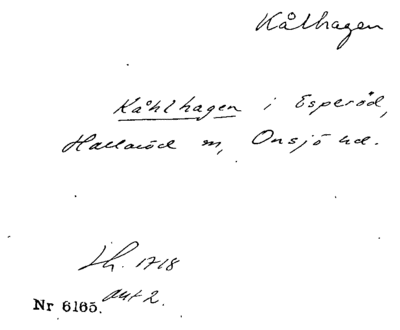 Kålhagen
Kåhlhagen i Esperöd,
Hallaröd sn, Onsjö hd.
Lh. 1718
ant 2.
Nr 6165.